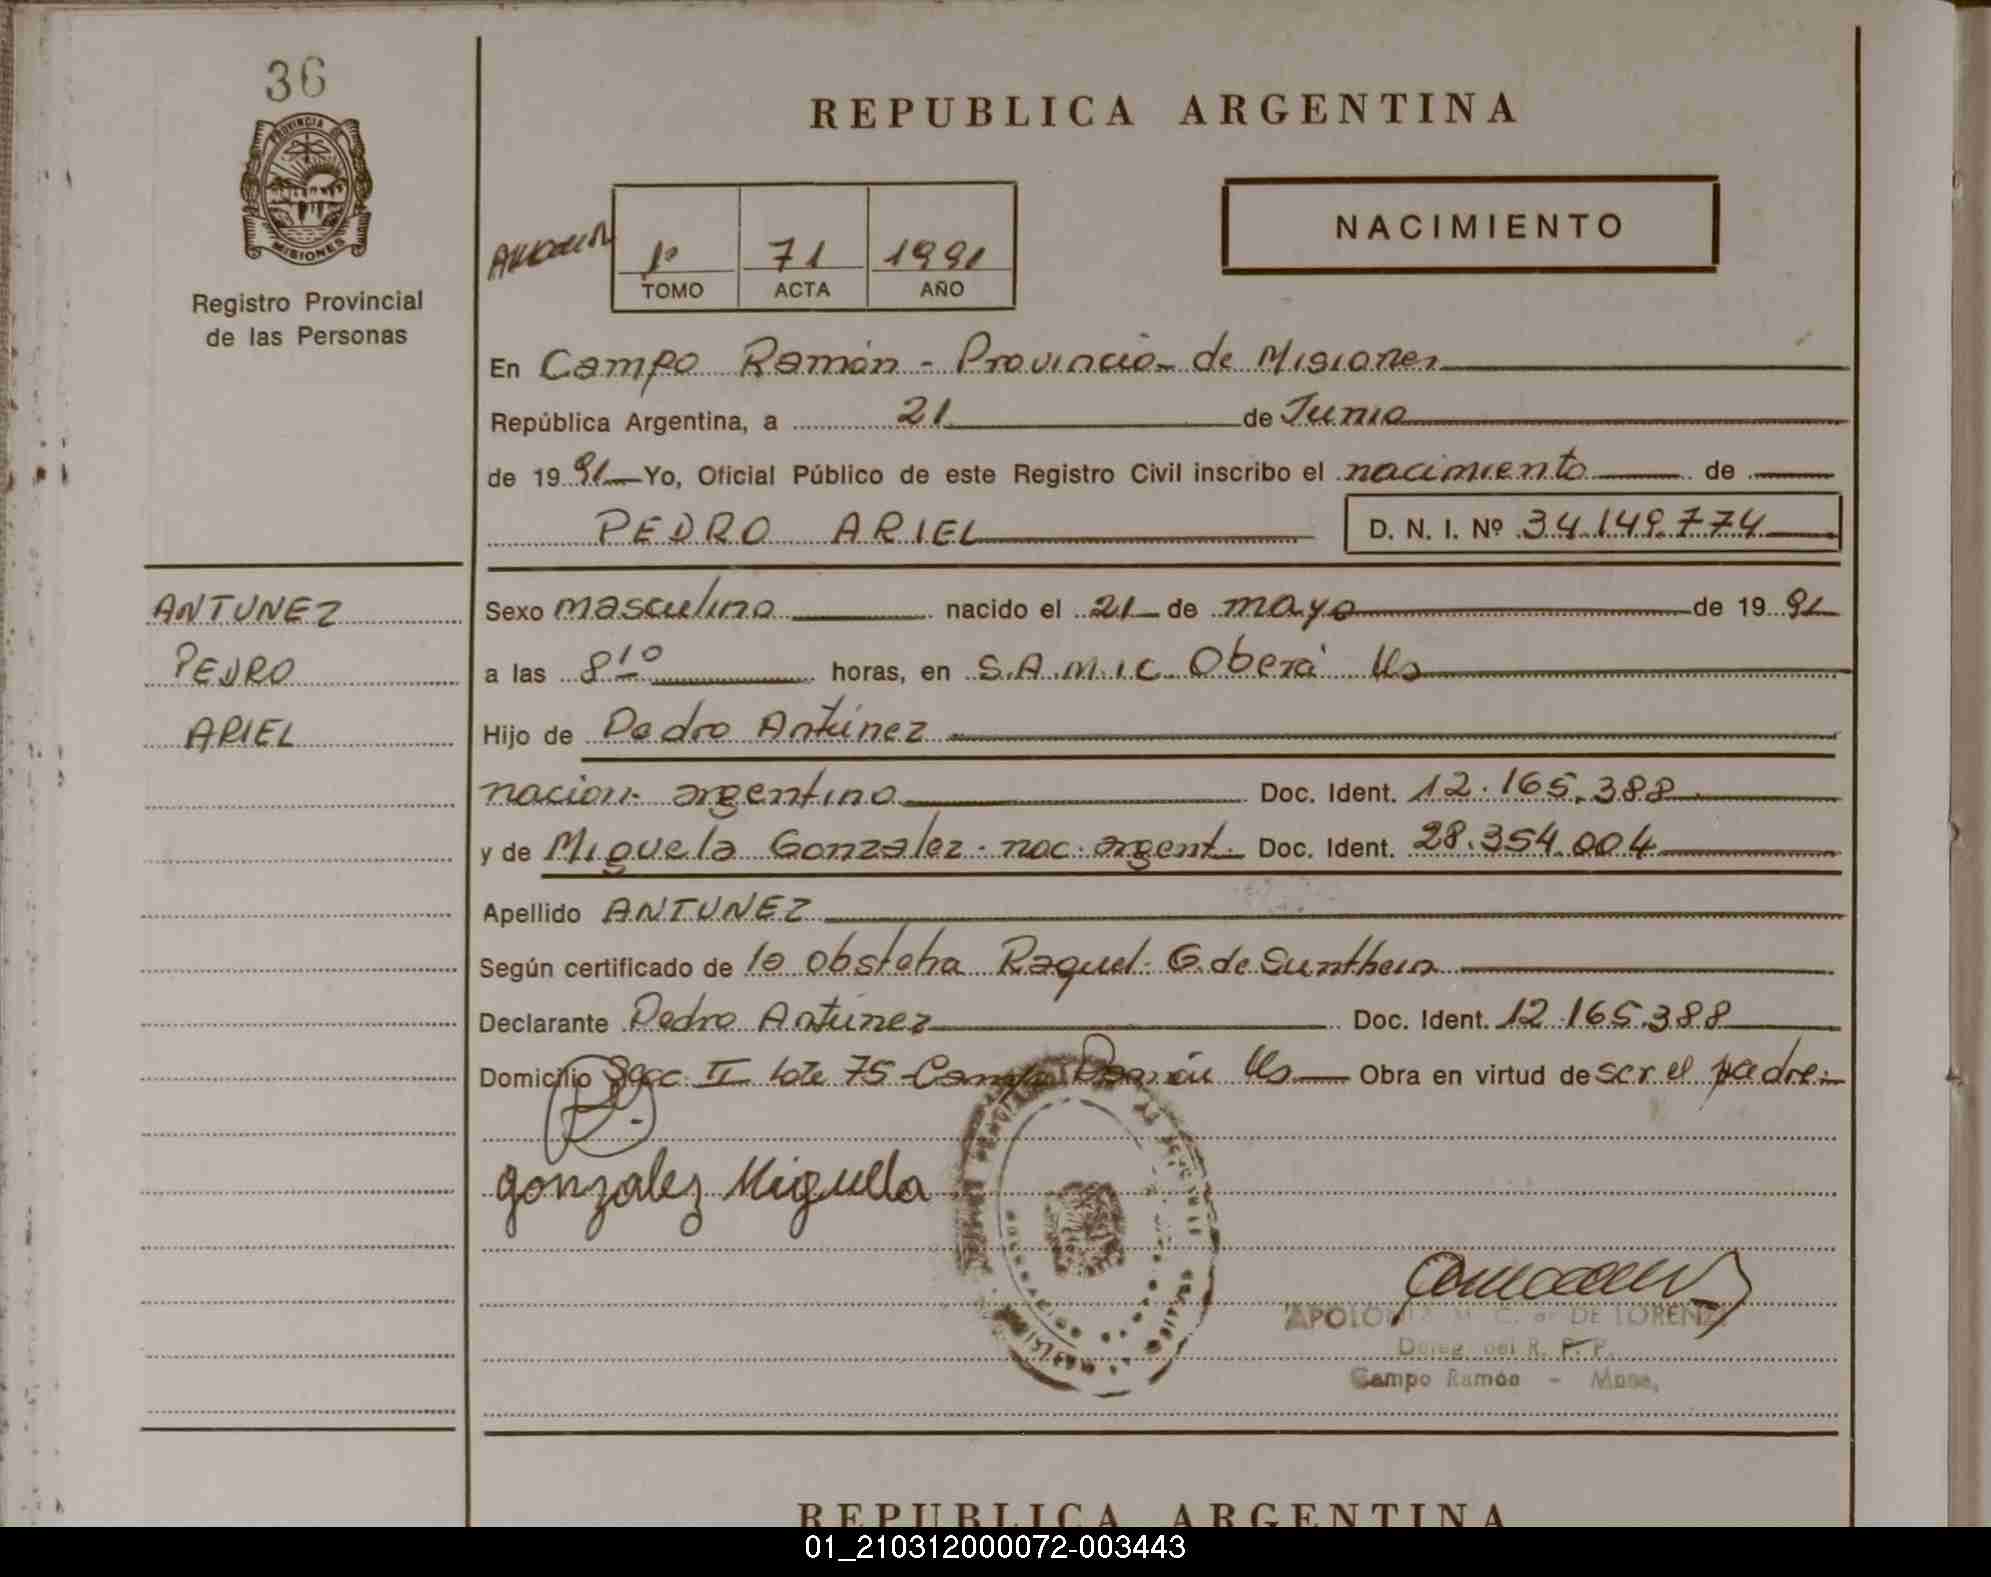 36
PROVINCIA DE
MISIONES
Registro Provincial
de las Personas
REPUBLICA ARGENTINA
NACIMIENTO
1º 71 1991
TOMO ACTA AÑO
En Campo Ramón - Provincia de Misiones
República Argentina, a 21 de Junio
de 1991 Yo, Oficial Público de este Registro Civil inscribo el nacimiento de
PEDRO ARIEL D. N. I. Nº 34.149.774
ANTUNEZ
PEDRO
ARIEL
Sexo masculino nacido el 21 de mayo de 1991
a las 8 10 horas, en S.A.M.I.C. Oberá Ms
Hijo de Pedro Antúnez
nacion. argentino Doc. Ident. 12.165.388
y de Miguela Gonzalez - nac. argent. Doc. Ident. 28.354.004
Apellido ANTUNEZ
Según certificado de la obstetra Raquel G. de
Declarante Pedro Antúnez Doc. Ident. 12.165.388
Domicilio Secc. II lote 75 - Campo Ramón Ms Obra en virtud de ser el padre.
gonzalez Miguela
APOLONIA M. C. DE LORENZ
Deleg. del R. P. P.
Campo Ramón - Mnes.
REPUBLICA ARGENTINA
01_210312000072-003443